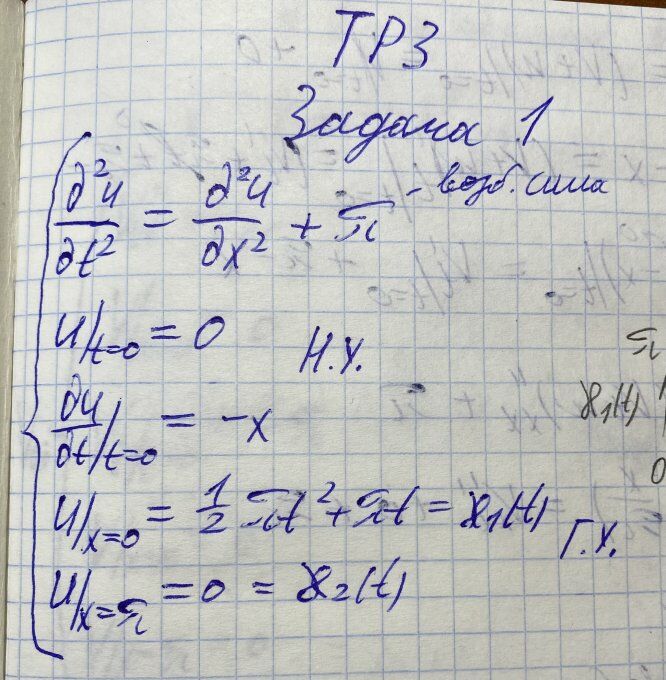 ТР3
Задача 1
∂²u/∂t² = ∂²u/∂x² + π - возб. сила
u/t=0 = 0 Н.У.
∂u/∂t/t=0 = -x
u/x=0 = 1/2 πt² + πt = γ₁(t) Г.У.
u/x=π = 0 = γ₂(t)
π
γ₁(t)
0